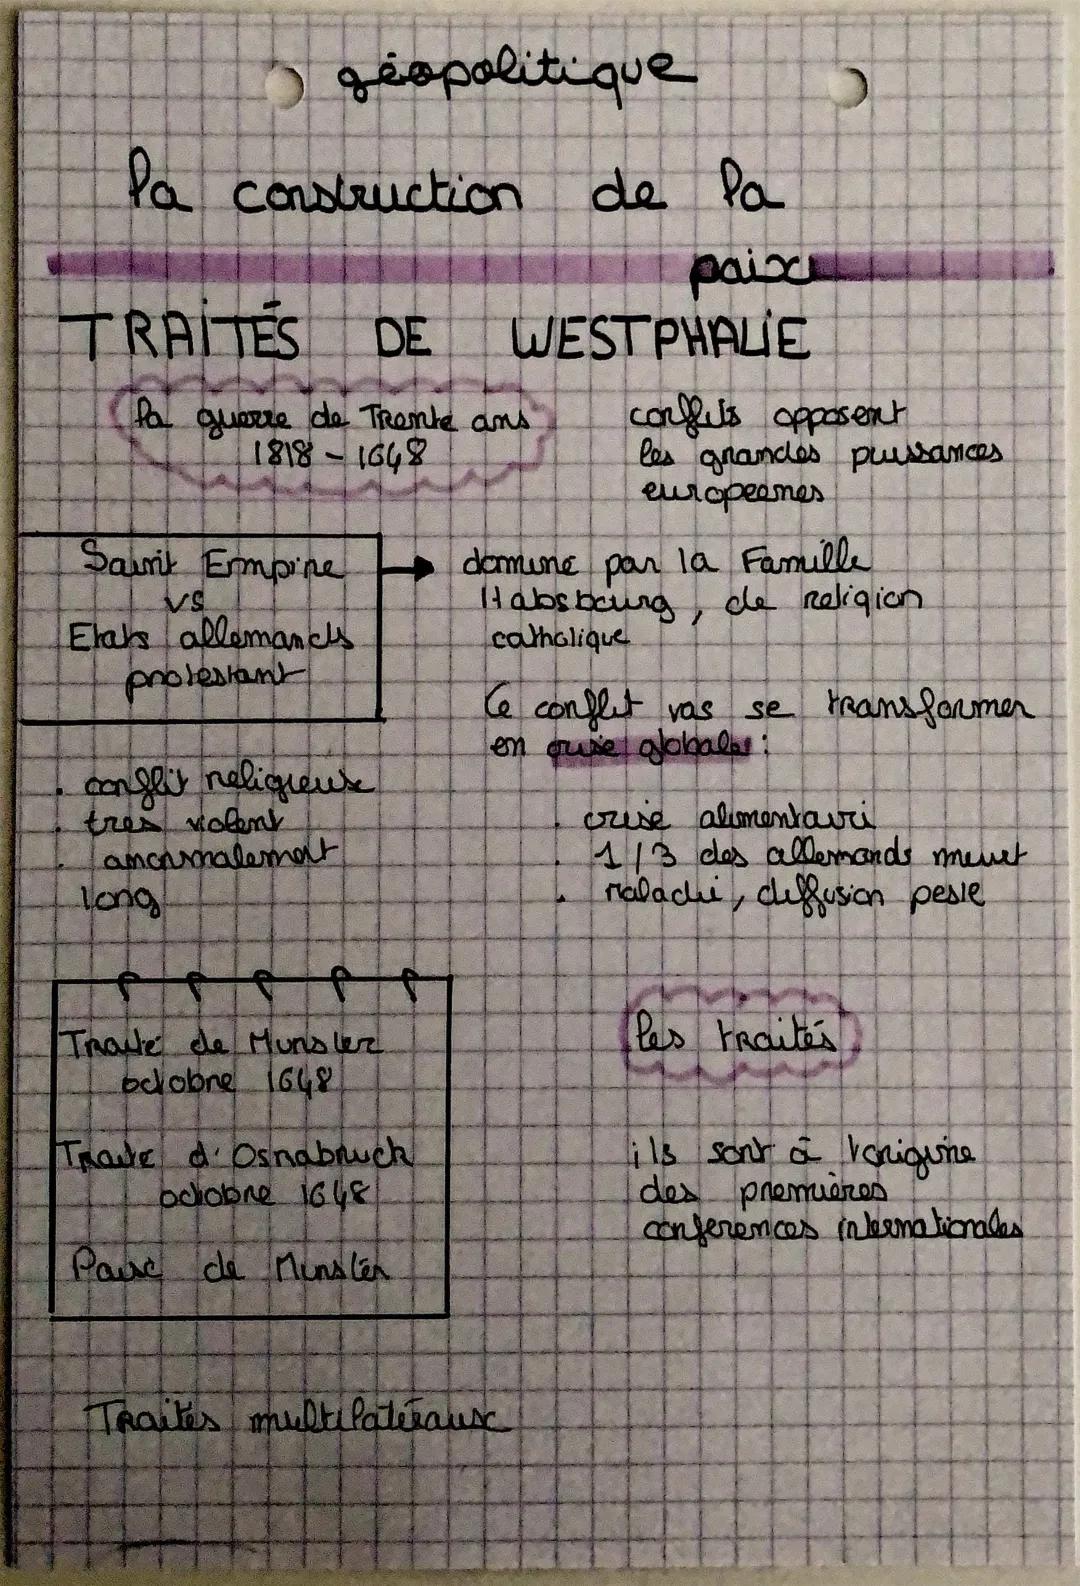 géopolitique
la construction de la
paix
TRAITÉS DE WESTPHALIE
la guerre de Trente ans
1818 - 1648
conflits opposent
les grandes puissances
europeenes
Saint Empire
vs
Etats allemands
protestant
domine par la Famille
Habsbourg, de religion
catholique
Ce conflit vas se transformer
en crise globale :
. conflit religieux
. tres violent
. anormalement
long
. crise alimentairi
. 1/3 des allemands meurt
. maladie, diffusion peste
Traité de Munster
octobre 1648
Traité d'Osnabruck
octobre 1648
Paix de Munster
les traités
ils sont à l'origine
des premières
conferences internationales
Traités multilatéraux